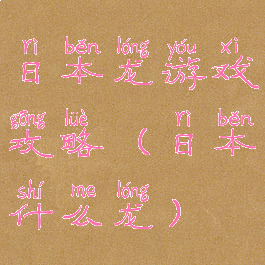 rì běn lóng yóu xì
日本龙游戏
gōng lüè rì běn
攻略（日本
shí me lóng
什么龙）